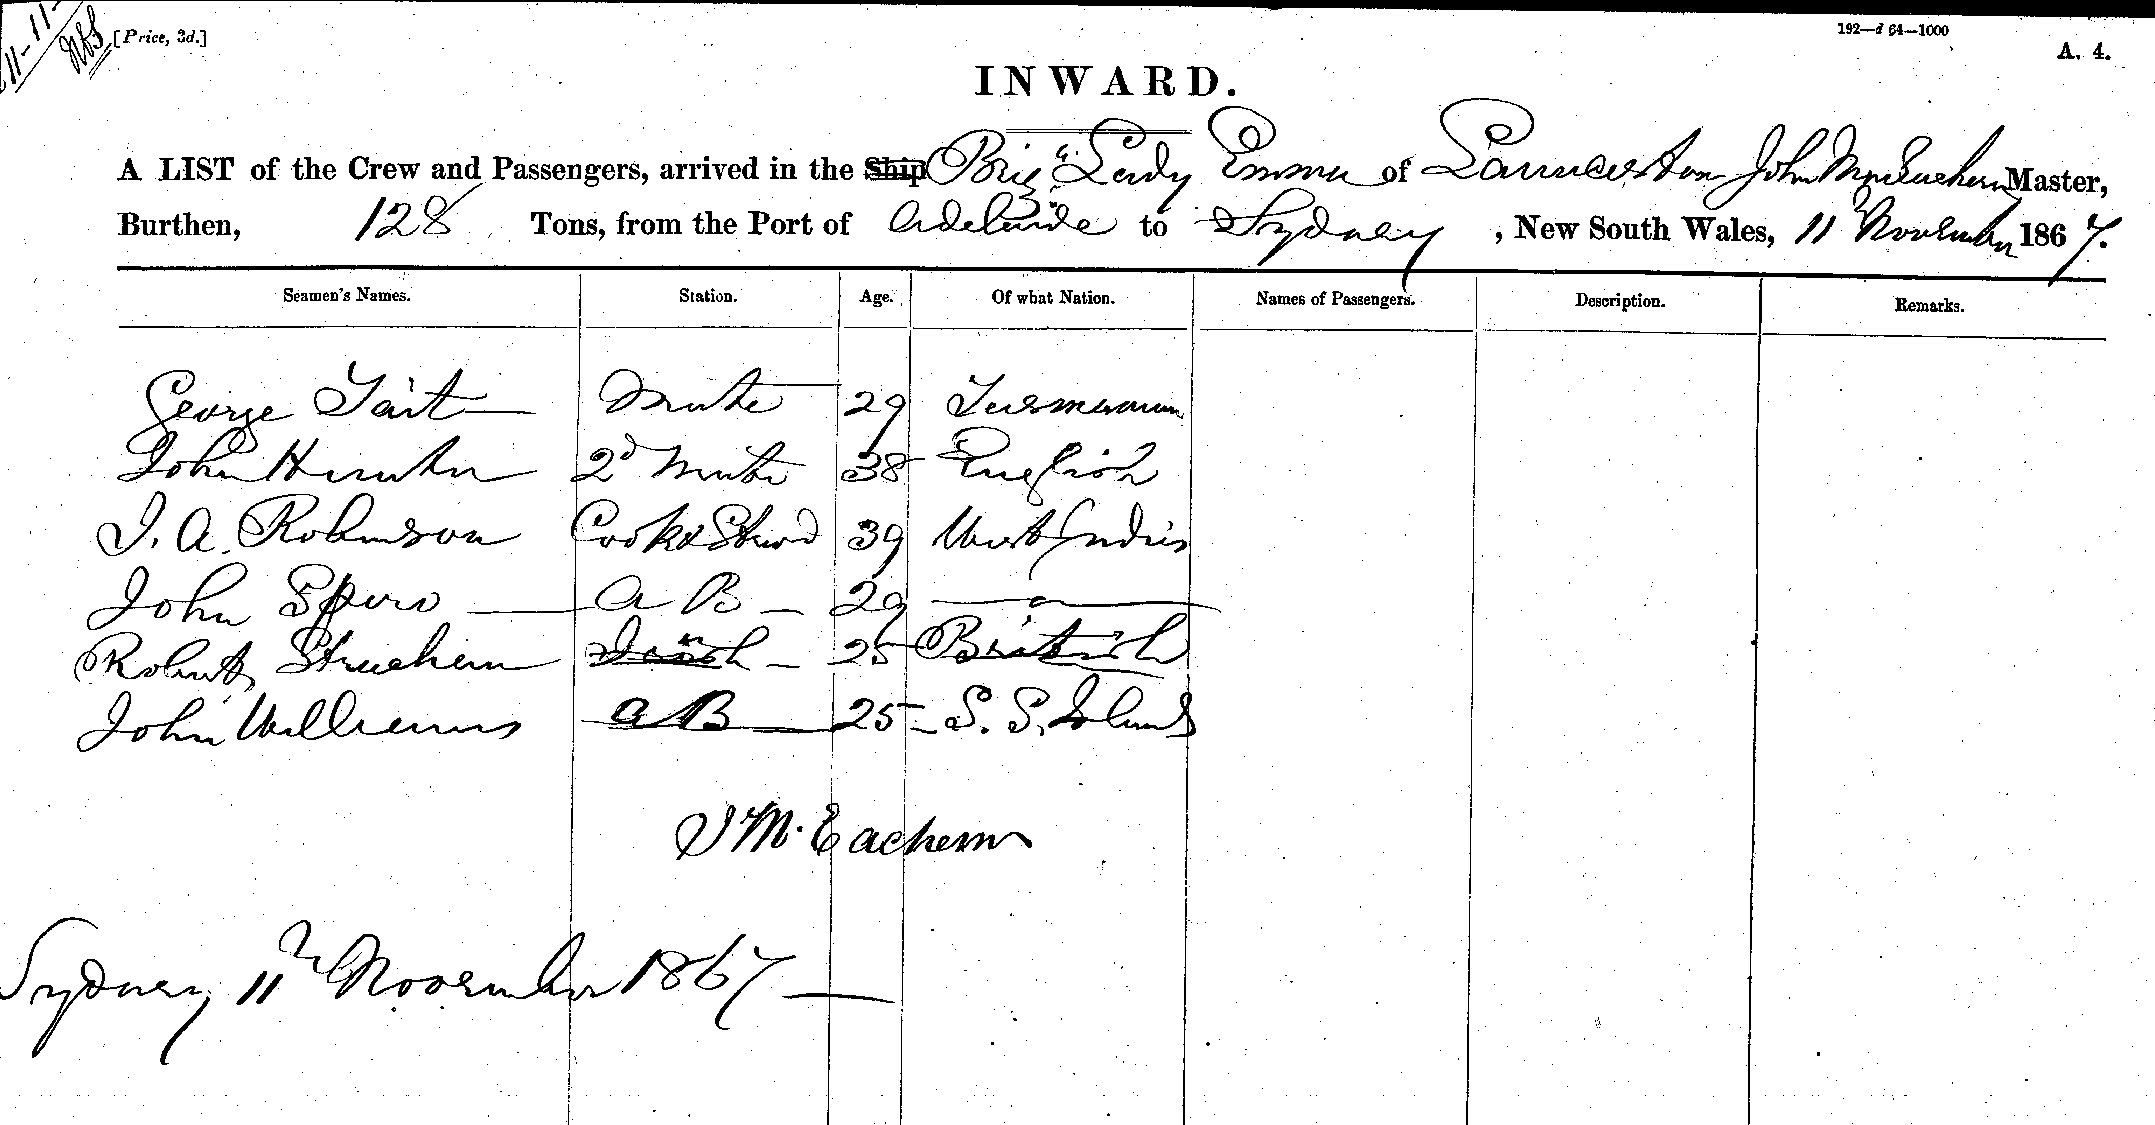 11-11-
[Price, 3d.]
192—d 64—1000
A. 4.
INWARD.
A LIST of the Crew and Passengers, arrived in the Ship Brig "Lady Emma of Launceston John MacEachern Master,
Burthen, 128 Tons, from the Port of Adelaide to Sydney, New South Wales, 11th November 1867.
Seamen's Names. Station. Age. Of what Nation. Names of Passengers. Description. Remarks.
George Tait Mate 29 Tasmanian
John Hunter 2d Mate 38 English
J. A. Robinson Cook & Stwrd 39 West Indies
John Spiro A B 29 — " —
Robert Strachern 25 British
John Williams A B 25 S. S. Islands
J M. Eachern
Sydney 11th November 1867